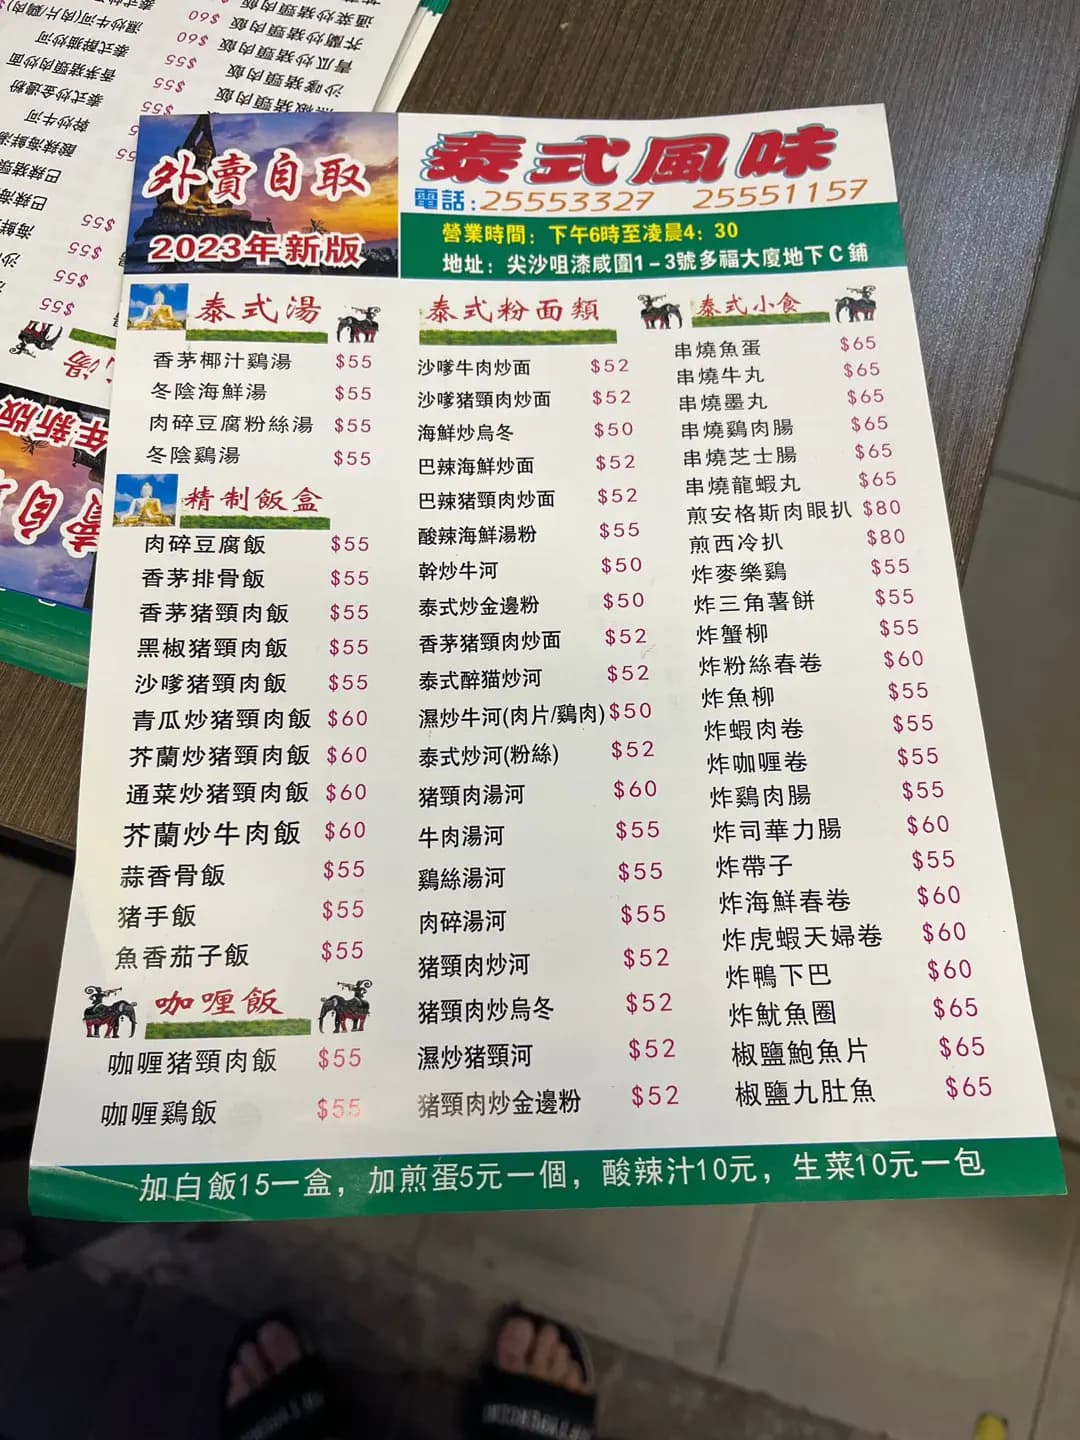 外賣自取
2023年新版
泰式風味
電話:25553327 25551157
營業時間：下午6時至凌晨4：30
地址：尖沙咀漆咸圍1-3號多福大廈地下C鋪
泰式湯
香茅椰汁鷄湯 $55
冬陰海鮮湯 $55
肉碎豆腐粉絲湯 $55
冬陰鷄湯 $55
精制飯盒
肉碎豆腐飯 $55
香茅排骨飯 $55
香茅猪頸肉飯 $55
黑椒猪頸肉飯 $55
沙嗲猪頸肉飯 $55
青瓜炒猪頸肉飯 $60
芥蘭炒猪頸肉飯 $60
通菜炒猪頸肉飯 $60
芥蘭炒牛肉飯 $60
蒜香骨飯 $55
猪手飯 $55
魚香茄子飯 $55
咖喱飯
咖喱猪頸肉飯 $55
咖喱鷄飯 $55
泰式粉面類
沙嗲牛肉炒面 $52
沙嗲猪頸肉炒面 $52
海鮮炒烏冬 $50
巴辣海鮮炒面 $52
巴辣猪頸肉炒面 $52
酸辣海鮮湯粉 $55
幹炒牛河 $50
泰式炒金邊粉 $50
香茅猪頸肉炒面 $52
泰式醉猫炒河 $52
濕炒牛河(肉片/鷄肉) $50
泰式炒河(粉絲) $52
猪頸肉湯河 $60
牛肉湯河 $55
鷄絲湯河 $55
肉碎湯河 $55
猪頸肉炒河 $52
猪頸肉炒烏冬 $52
濕炒猪頸河 $52
猪頸肉炒金邊粉 $52
泰式小食
串燒魚蛋 $65
串燒牛丸 $65
串燒墨丸 $65
串燒鷄肉腸 $65
串燒芝士腸 $65
串燒龍蝦丸 $65
煎安格斯肉眼扒 $80
煎西冷扒 $80
炸麥樂鷄 $55
炸三角薯餅 $55
炸蟹柳 $55
炸粉絲春卷 $60
炸魚柳 $55
炸蝦肉卷 $55
炸咖喱卷 $55
炸鷄肉腸 $55
炸司華力腸 $60
炸帶子 $55
炸海鮮春卷 $60
炸虎蝦天婦卷 $60
炸鴨下巴 $60
炸魷魚圈 $65
椒鹽鮑魚片 $65
椒鹽九肚魚 $65
加白飯15一盒，加煎蛋5元一個，酸辣汁10元，生菜10元一包